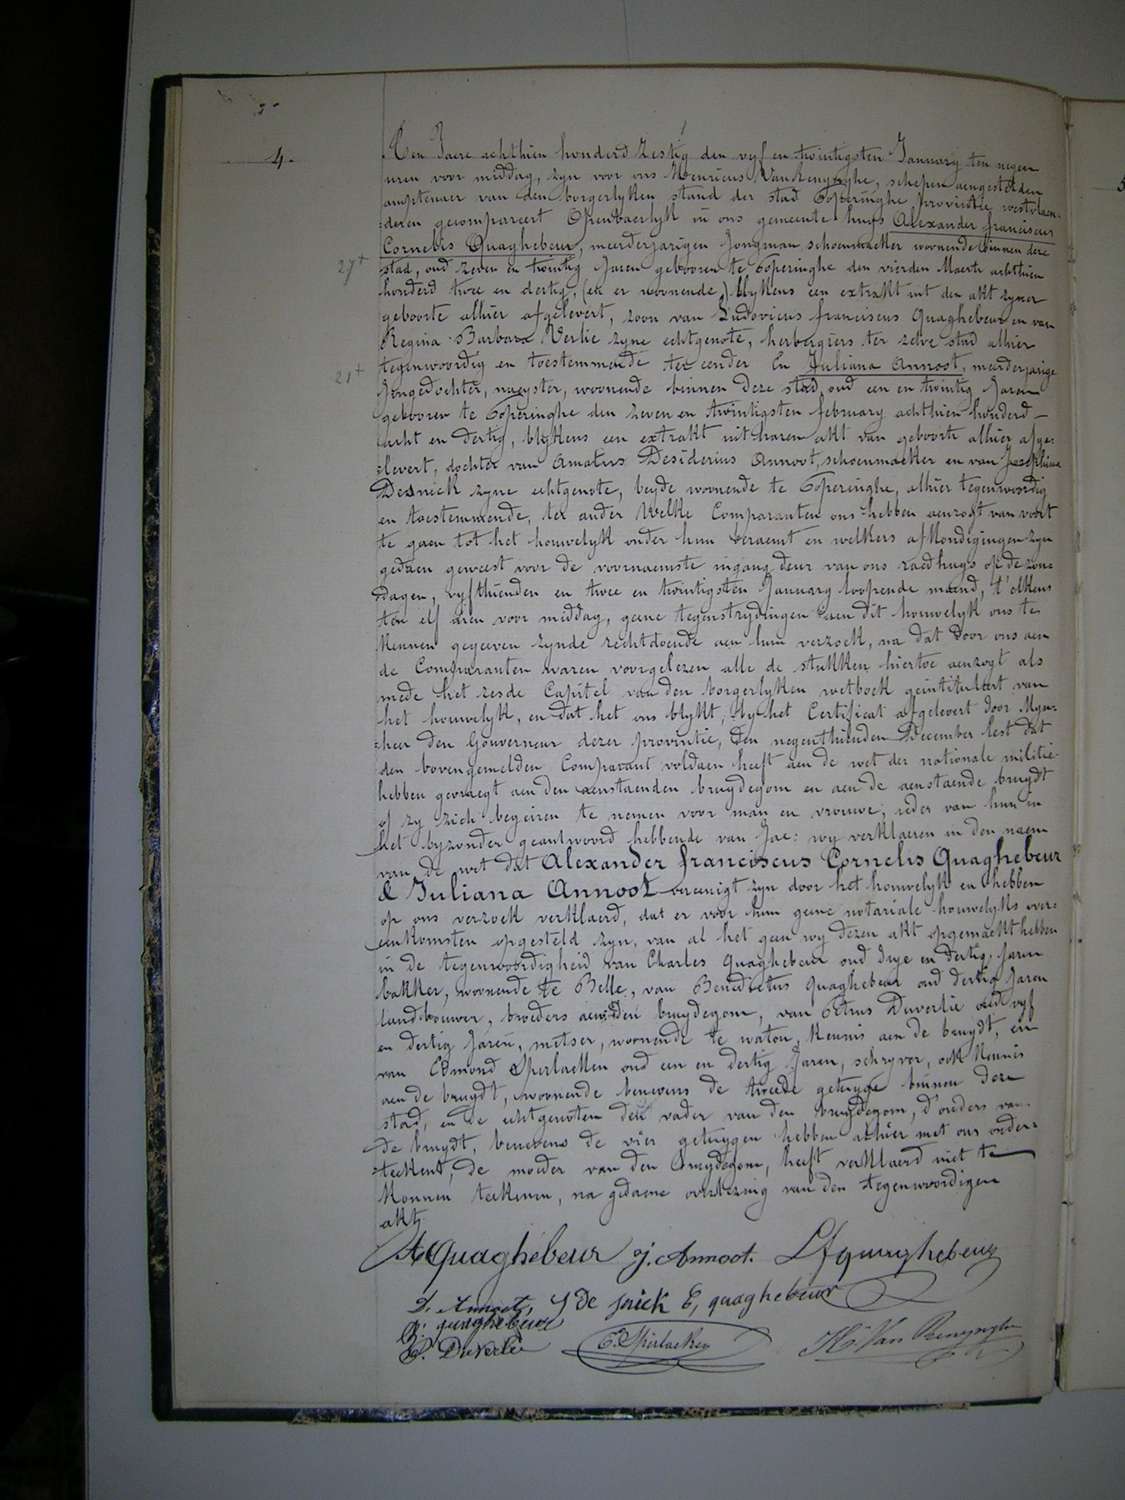 4.
Den Jaere achthien honderd zestig den vyf en twintigsten January ten negen
uren voor middag, zyn voor ons Henricus Van Renynghe, schepen aengestelden
amptenaer van den borgerlyken stand der stad Poperinghe provintie westvlaen-
=deren gecompareert Openbaerlyk in ons gemeente huys Alexander franciscus
Cornelis Quaghebeur, meerderjarigen Jongman, schoenmaeker woonende binnen deze
27+
stad, oud zeven en twintig Jaren gebooren te Poperinghe den vierden Maerte achthien
honderd twee en dertig, (en er woonende,) blykens een extrakt uit den akt zyner
geboorte alhier afgelevert, zoon van Ludovicus franciscus Quaghebeur en van
Regina Barbara Verlie zyne echtgenote, herbergiers ter zelve stad alhier
21+
tegenwoordig en toestemmende ter eender En Juliana Annoot, meerderjarige
Jongedochter, naeyster, woonende binnen deze stad, oud een en twintig Jaren
gebooren te Poperinghe den zeven en twintigsten february achthien honderd
acht en dertig, blykens een extrakt uit haren akt van geboorte alhier afge-
=levert, dochter van Amatus Desiderius Annoot, schoenmaeker en van Josephina
Desnick zyne echtgenote, beyde woonende te Poperinghe, alhier tegenwoordig
en toestemmende, ter ander Welke Comparanten ons hebben aenzogt van voort
te gaen tot het houwelyk onder hun beraemt en welkers afkondigingen zyn
gedaen geweest voor de voornaemste ingang deur van ons raedhuys op de zon=
dagen, vyfthienden en twee en twintigsten January loopende maend, t'elkens
ten elf uren voor middag, geene tegenstrydingen aen dit houwelyk ons te
kennen gegeven zynde rechtdoende aen hun verzoek, na dat door ons aen
de Comparanten waren voorgelezen alle de stukken hiertoe aenzogt als
mede het zesde Capitel van den borgerlyken wetboek geintituleert van
het houwelyk, en dat het ons blykt, by het Certificat afgelevert door Myn-
=heer den Gouverneur dezer provintie, den negenthienden December lest dat
den bovengemelden Comparant voldaen heeft aen de wet der nationale militie
hebben gevraegt aen den aenstaenden bruydegom en aen de aenstaende bruydt
of zy zich begeiren te nemen voor man en vrouwe; ieder van hun in
het byzonder geantwoord hebbende van Jae: wy verklaeren in den naem
van de wet dat Alexander franciscus Cornelis Quaghebeur
& Juliana Annoot vereenigt zyn door het houwelyk en hebben
op ons verzoek verklaerd, dat er voor hun geene notariale houwelyks over=
eenkomsten opgesteld zyn, van al het geen wy dezen akt opgemaekt hebben
in de tegenwoordigheid van Charles Quaghebeur oud drye en dertig Jaren
bakker, woonende te Belle, van Benedictus Quaghebeur oud dertig Jaren
landbouwer, broeders aen den bruydegom, van Petrus Duverlie oud vyf
en dertig Jaren, metser, woonende te watou, kennis aen de bruydt, en
van Edmond Sperlaeken oud een en dertig Jaren, schryver, ook kennis
aen de bruydt, woonende benevens de tweede getuyge binnen deze
stad, en de echtgenoten den vader van den bruydegom, d'ouders van
de bruydt, benevens de vier getuygen hebben alhier met ons onder=
=teekent, de moeder van den bruydegom, heeft verklaerd niet te
konnen teekenen, na gedaene overlezing van den tegenwoordigen
akt
A Quaghebeur j. Annoot. L f quaghebeur
d. Annoot, J de snick C, quaghebeur
B. quaghebeur
P. Duverlie E. Sperlaeken H. Van Renynghe